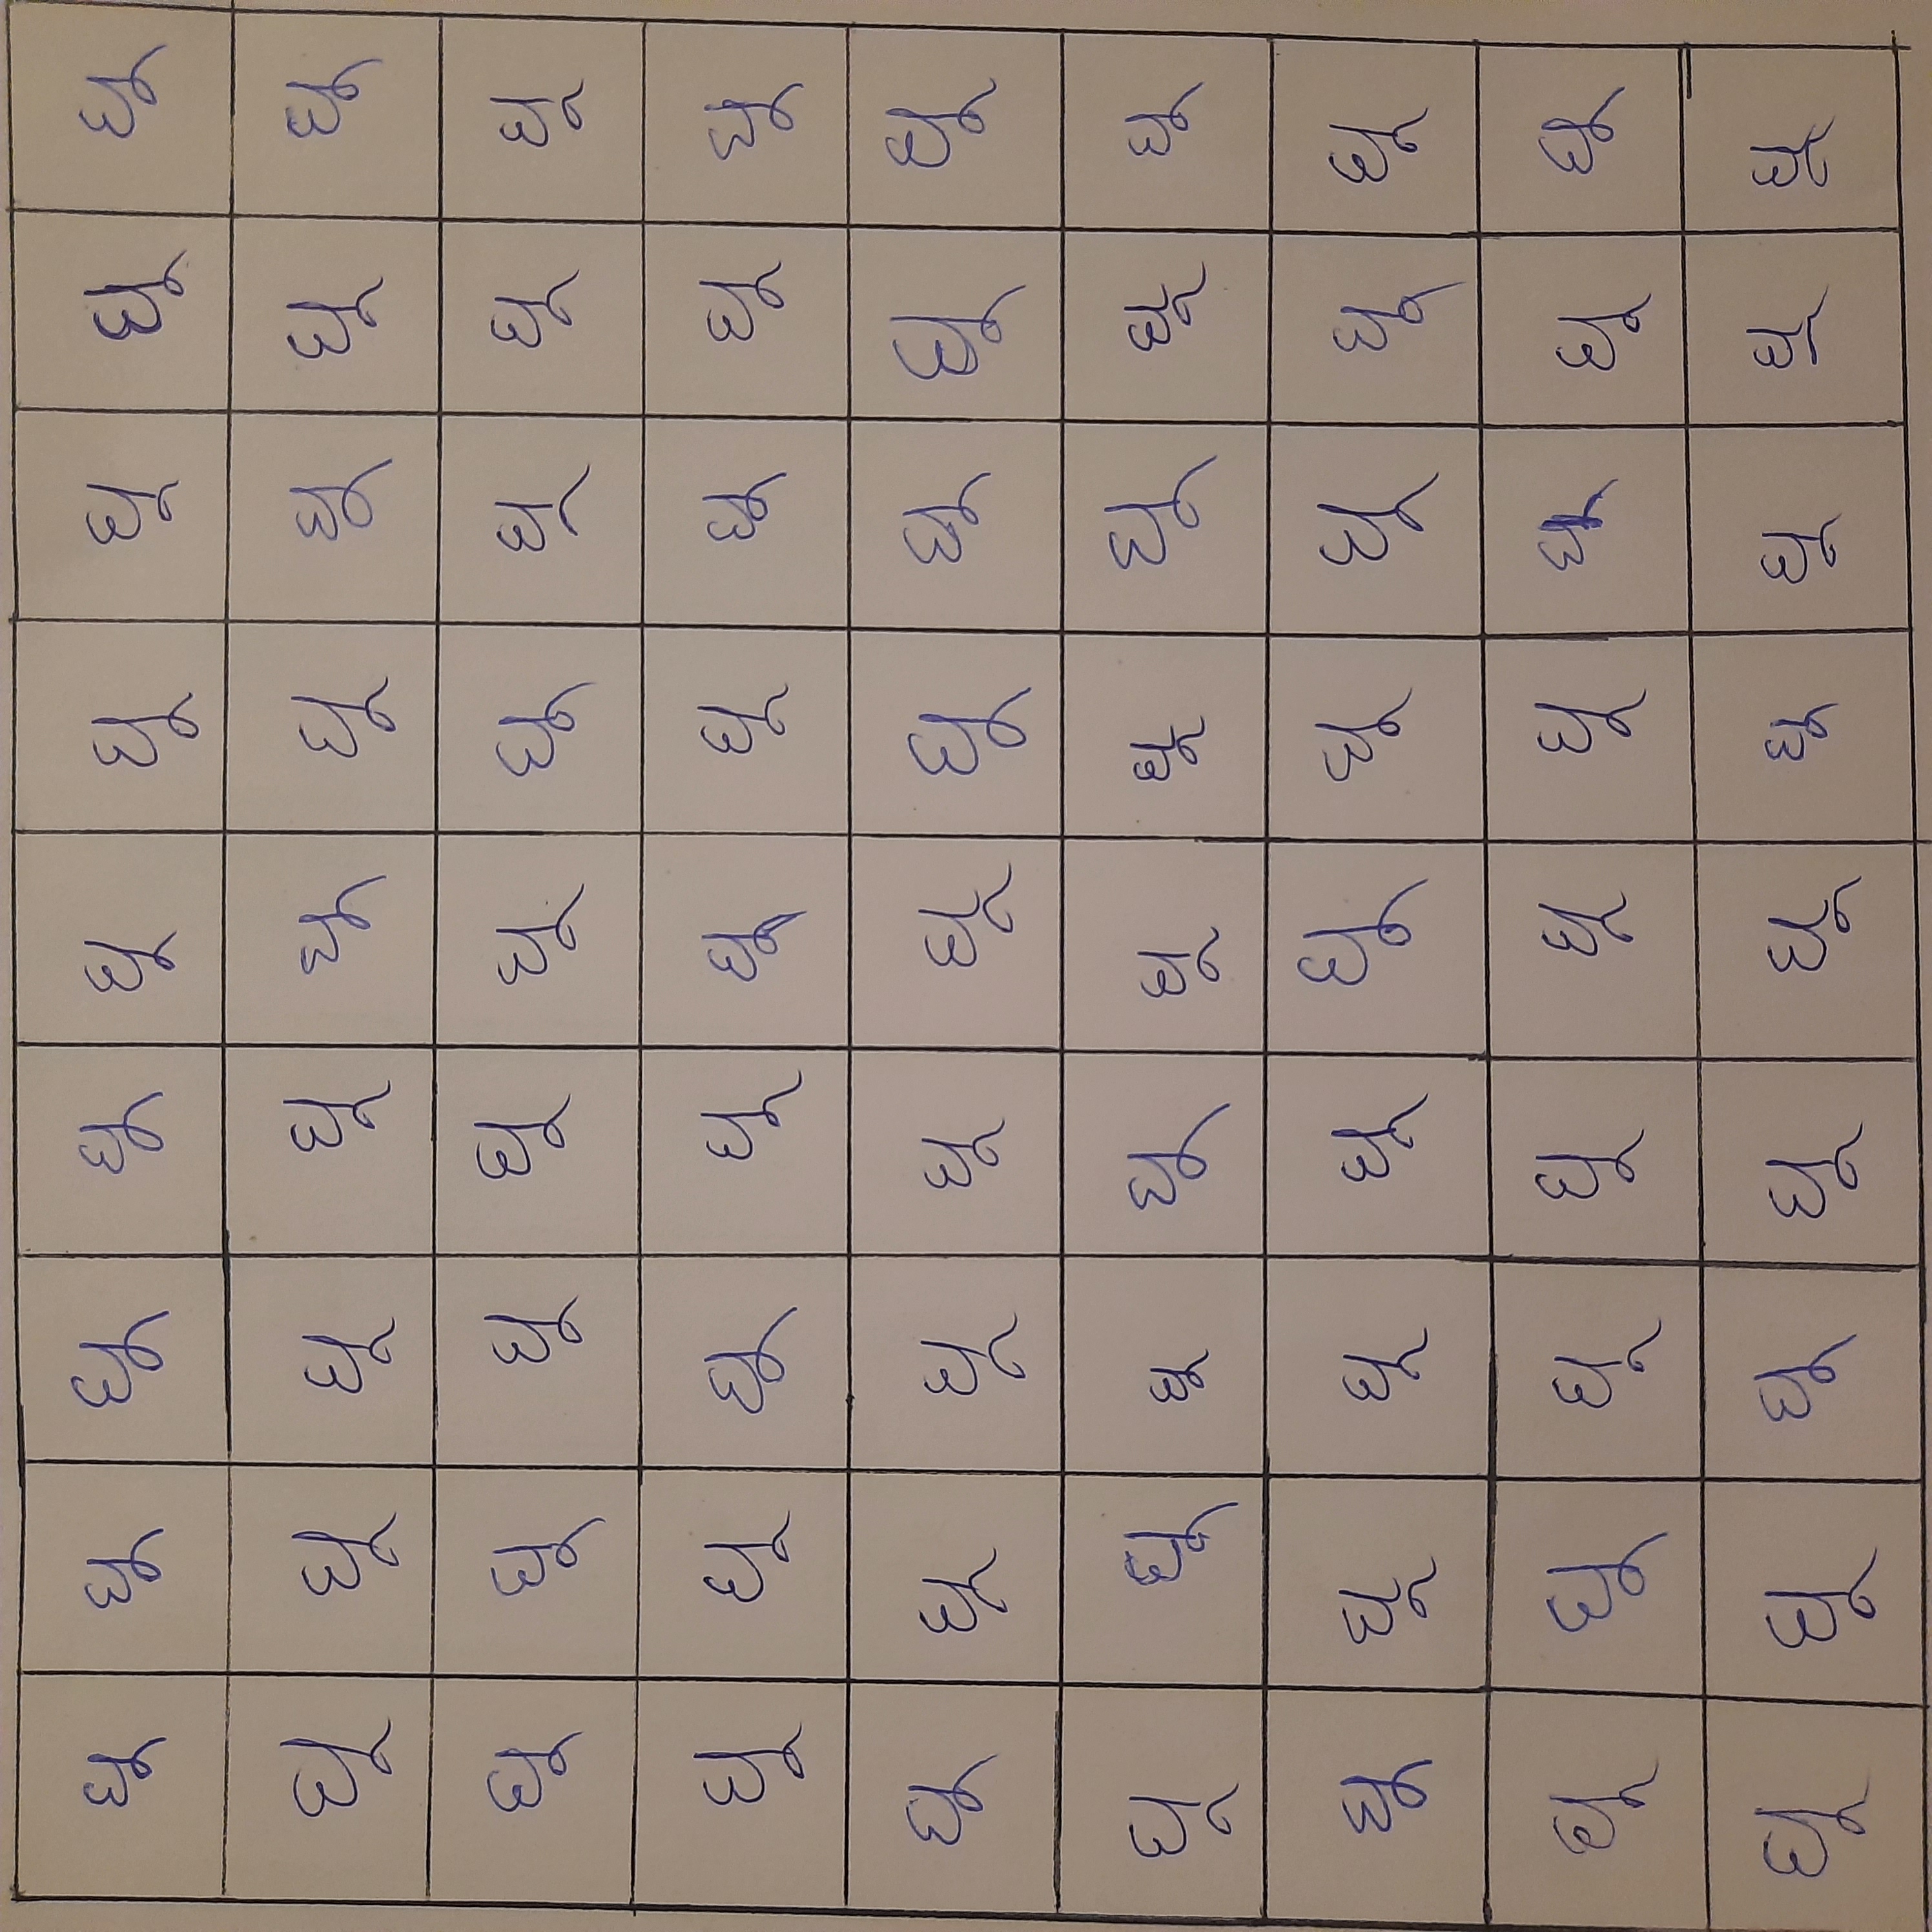 ઘૂ ઘૂ ઘૂ ઘૂ ઘૂ ઘૂ ઘૂ ઘૂ ઘૂ
ઘૂ ઘૂ ઘૂ ઘૂ ઘૂ ઘૂ ઘૂ ઘૂ ઘૂ
ઘૂ ઘૂ ઘૂ ઘૂ ઘૂ ઘૂ ઘૂ ઘૂ ઘૂ
ઘૂ ઘૂ ઘૂ ઘૂ ઘૂ ઘૂ ઘૂ ઘૂ ઘૂ
ઘૂ ઘૂ ઘૂ ઘૂ ઘૂ ઘૂ ઘૂ ઘૂ ઘૂ
ઘૂ ઘૂ ઘૂ ઘૂ ઘૂ ઘૂ ઘૂ ઘૂ ઘૂ
ઘૂ ઘૂ ઘૂ ઘૂ ઘૂ ઘૂ ઘૂ ઘૂ ઘૂ
ઘૂ ઘૂ ઘૂ ઘૂ ઘૂ ઘૂ ઘૂ ઘૂ ઘૂ
ઘૂ ઘૂ ઘૂ ઘૂ ઘૂ ઘૂ ઘૂ ઘૂ ઘૂ